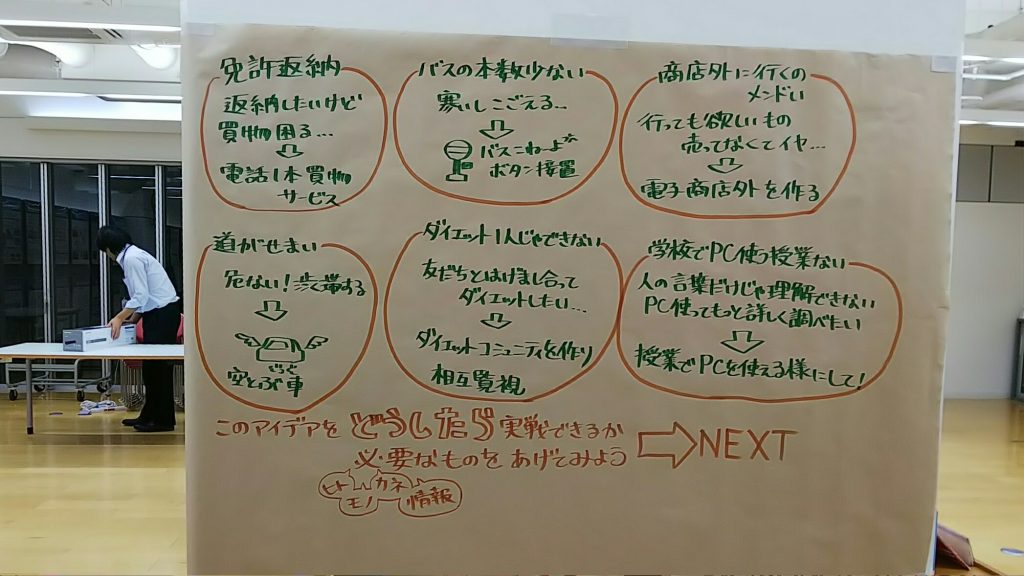 免許返納
返納したいけど
買物困る…
電話1本買物
サービス
バスの本数少ない
寒いしこごえる…
バスこねーよ
ボタン接置
商店外に行くの
メンドい
行っても欲しいもの
売ってなくてイヤ…
電子商店外を作る
道がせまい
危ない!渋帯する
空とぶ車
ダイエット1人じゃできない
友だちとはげまし合って
ダイエットしたい…
ダイエットコミュニティを作り
相互監視
学校でPC使う授業ない
人の言葉だけじゃ理解できない
PC使ってもっと詳しく調べたい
授業でPCを使える様にして!
このアイデアを どうしたら 実戦できるか
必要なものを あげてみよう
NEXT
ヒト
カネ
モノ
情報